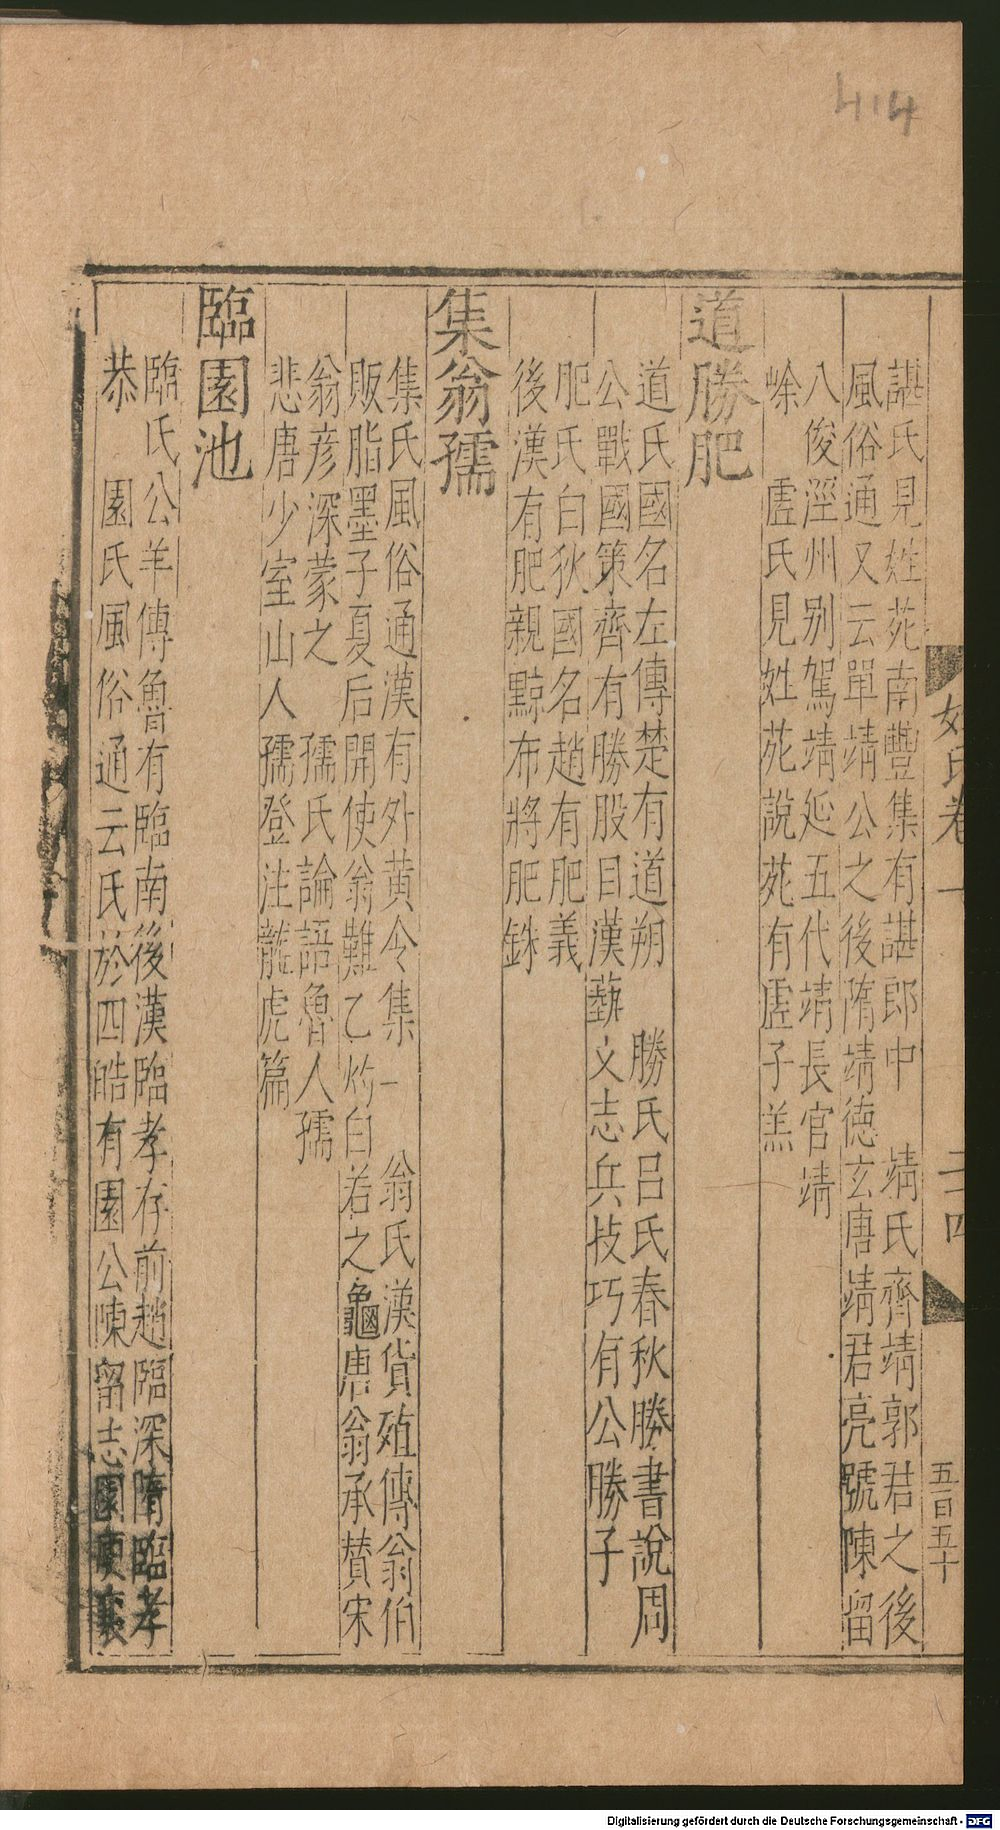 414
姓氏卷一
二四
五百五十
諶氏見姓苑南豐集有諶郎中 靖氏齊靖郭君之後
風俗通又云單靖公之後隋靖德玄唐靖君亮號陳留
八俊涇州別駕靖延五代靖長官靖
㟯 虗氏見姓苑說苑有虗子羔
道勝肥
道氏國名左傳楚有道朔 勝氏呂氏春秋勝書說周
公戰國策齊有勝股目漢藝文志兵技巧有公勝子
肥氏白狄國名趙有肥義
後漢有肥親黥布將肥銖
集翁孺
集氏風俗通漢有外黃令集一 翁氏漢貨殖傳翁伯
販脂墨子夏后開使翁難乙灼白若之龜唐翁承贊宋
翁彥深蒙之 孺氏論語魯人孺
悲唐少室山人孺登注龍虎篇
臨園池
臨氏公羊傳魯有臨南後漢臨孝存前趙臨深隋臨孝
恭 園氏風俗通云氏於四皓有園公陳留志園庾襄
Digitalisierung gefördert durch die Deutsche Forschungsgemeinschaft - DFG